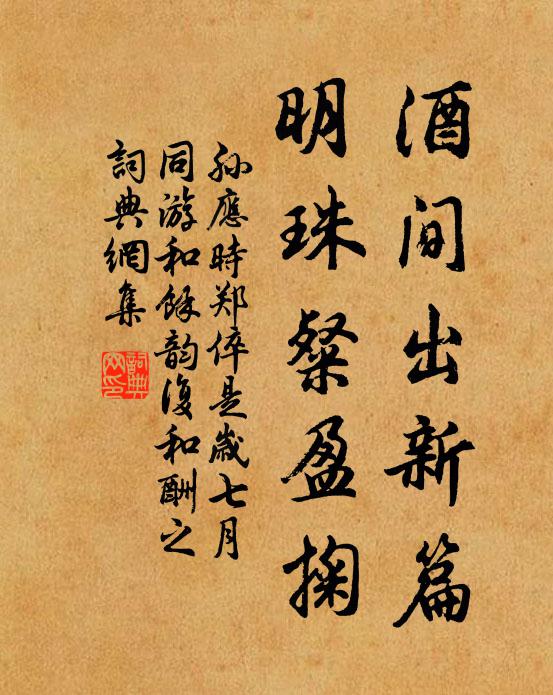 酒间出新篇
明珠粲盈掬
孙應時郑倅是岁七月
同游和馀韵復和酬之
詞典網集
詞典網印